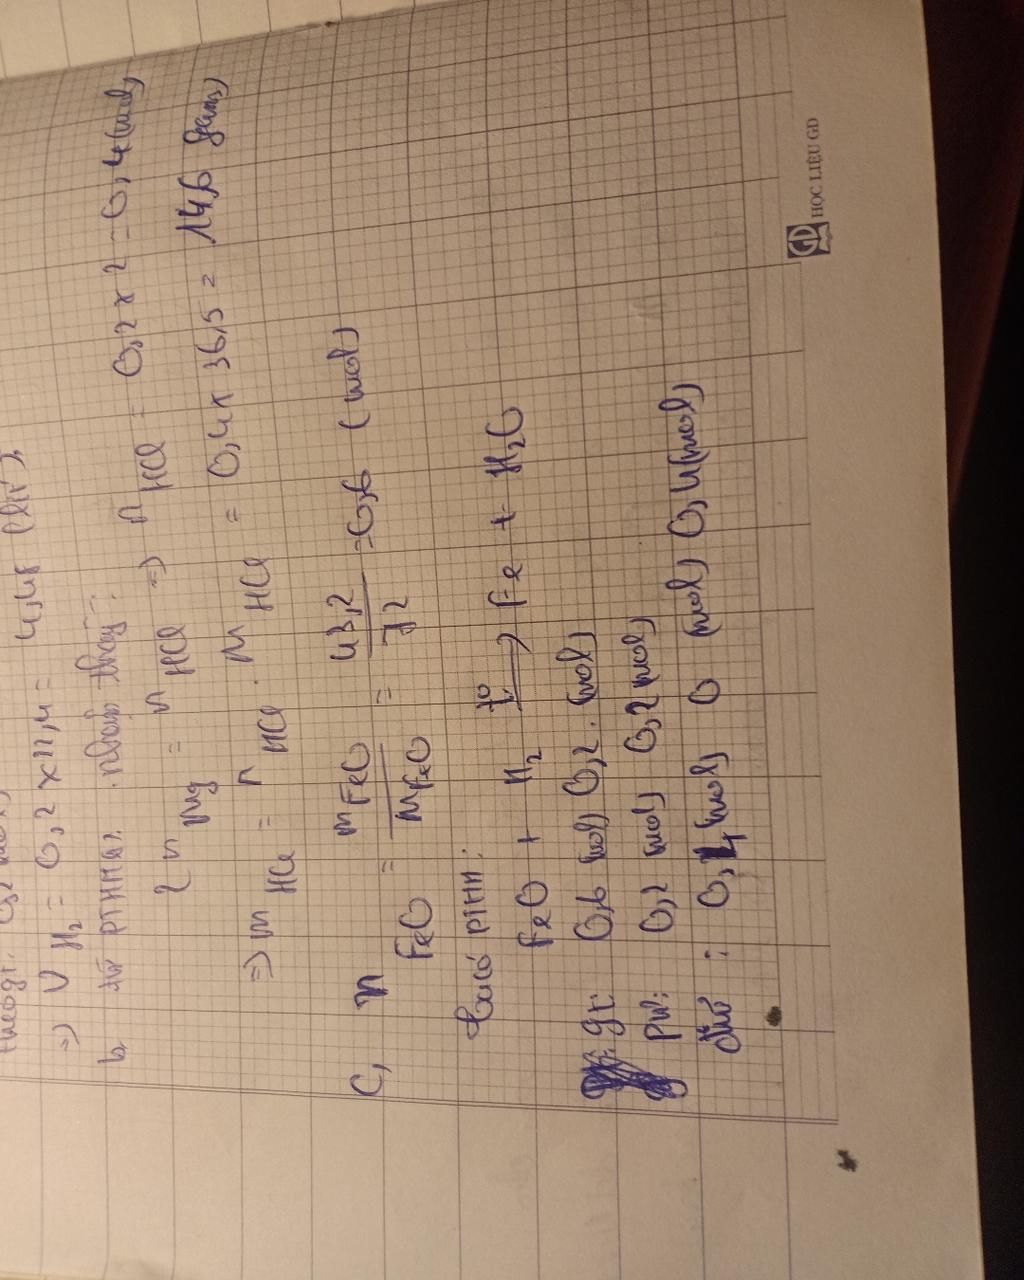 => V H₂ = 0,2 x 22,4 = 4,48 (lít).
b, từ PTHH
2 n Mg = n HCl => n HCl = 0,2 x 2 = 0,4 (mol)
=> m HCl = n HCl . M HCl = 0,4 x 36,5 = 14,6 gam)
c, n FeO = m FeO / M FeO = 43,2 / 72 = 0,6 (mol)
PTHH:
FeO + H₂ t° → Fe + H₂O
gt: 0,6 mol) 0,2. (mol)
PW: 0,2 mol) 0,2 mol)
: 0,4 (mol) 0 (mol) 0,4 (mol)
GD HỌC LIỆU GD